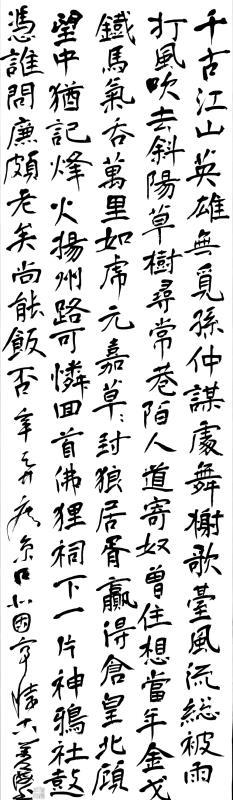 千古江山英雄無覓孫仲謀處舞榭歌臺風流總被雨
打風吹去斜陽草樹尋常巷陌人道寄奴曾住想當年金戈
鐵馬氣吞萬里如虎元嘉草〻封狼居胥贏得倉皇北顧
望中猶記烽火揚州路可憐回首佛狸祠下一片神鴉社鼓
憑誰問廉頗老矣尚能飯否辛弃疾京口北固亭懷古